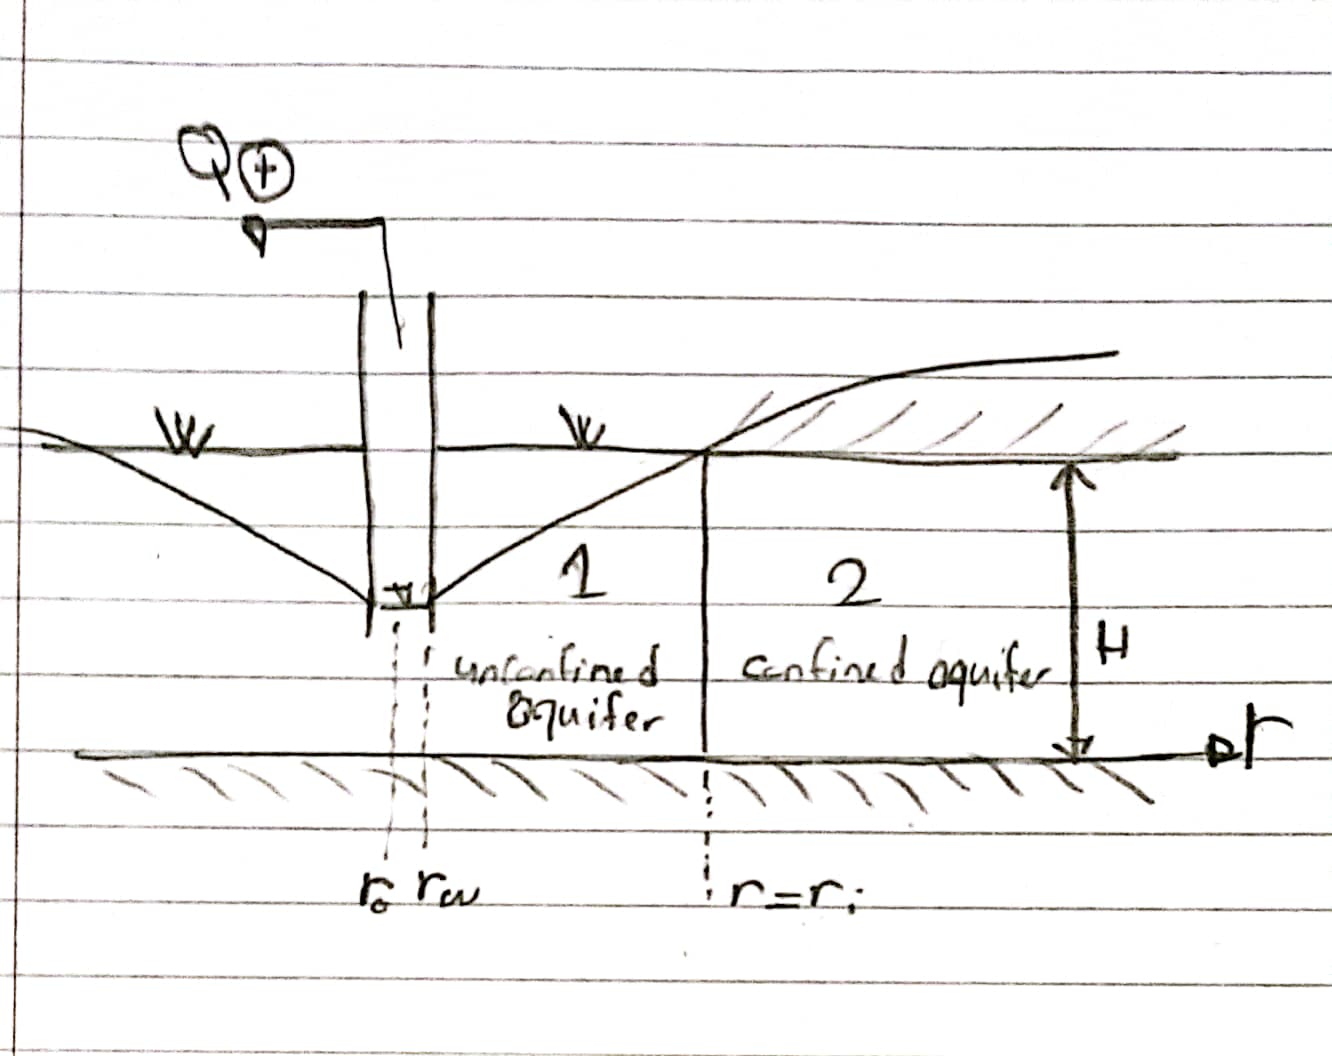 Q⊕
1
2
H
unconfined
aquifer
confined aquifer
r
r₀ rw
r=ri